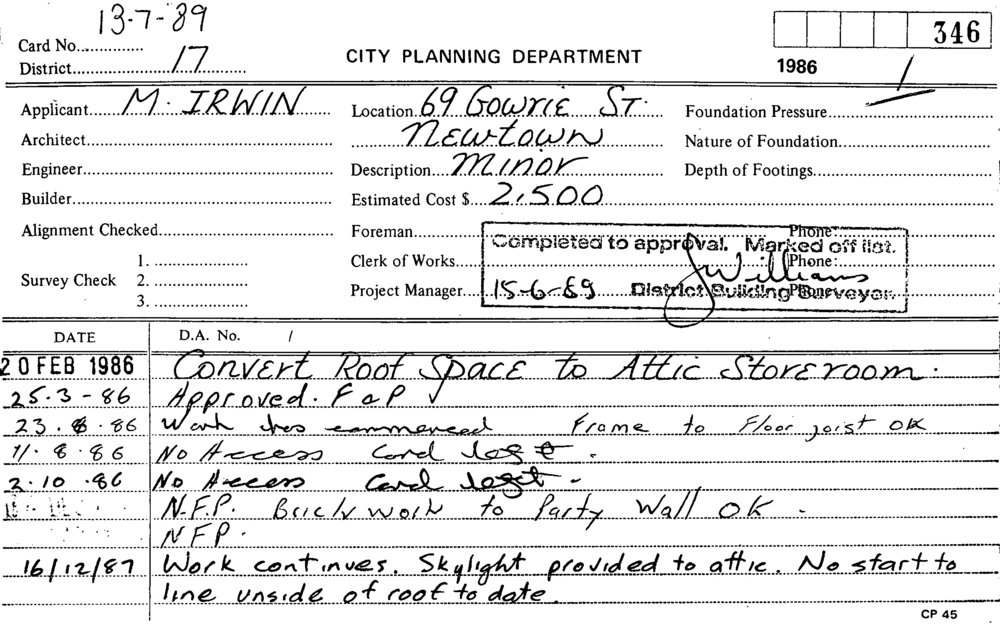 13-7-89
Card No.
346
District 17
CITY PLANNING DEPARTMENT
1986 /
Applicant M. IRWIN
Location 69 Gowrie St.
Foundation Pressure
Architect
Newtown
Nature of Foundation
Engineer
Description Minor
Depth of Footings
Builder
Estimated Cost $ 2,500
Alignment Checked
Foreman
Phone:
Completed to approval. Marked off list.
Survey Check
1.
2.
3.
Clerk of Works
Phone:
JWilliams
Project Manager
15-6-89 District Building Surveyor.
Phone:
DATE D.A. No. /
20 FEB 1986 Convert Roof Space to Attic Storeroom.
25.3-86 Approved. F & P ✓
23. 86 Work has commenced Frame to Floor joist OK
11.8.86 No Access Card left.
2.10.86 No Access Card left.
N.F.P. Brickwork to Party Wall OK.
NFP.
16/12/87 Work continues. Skylight provided to attic. No start to
line unside of roof to date.
CP 45